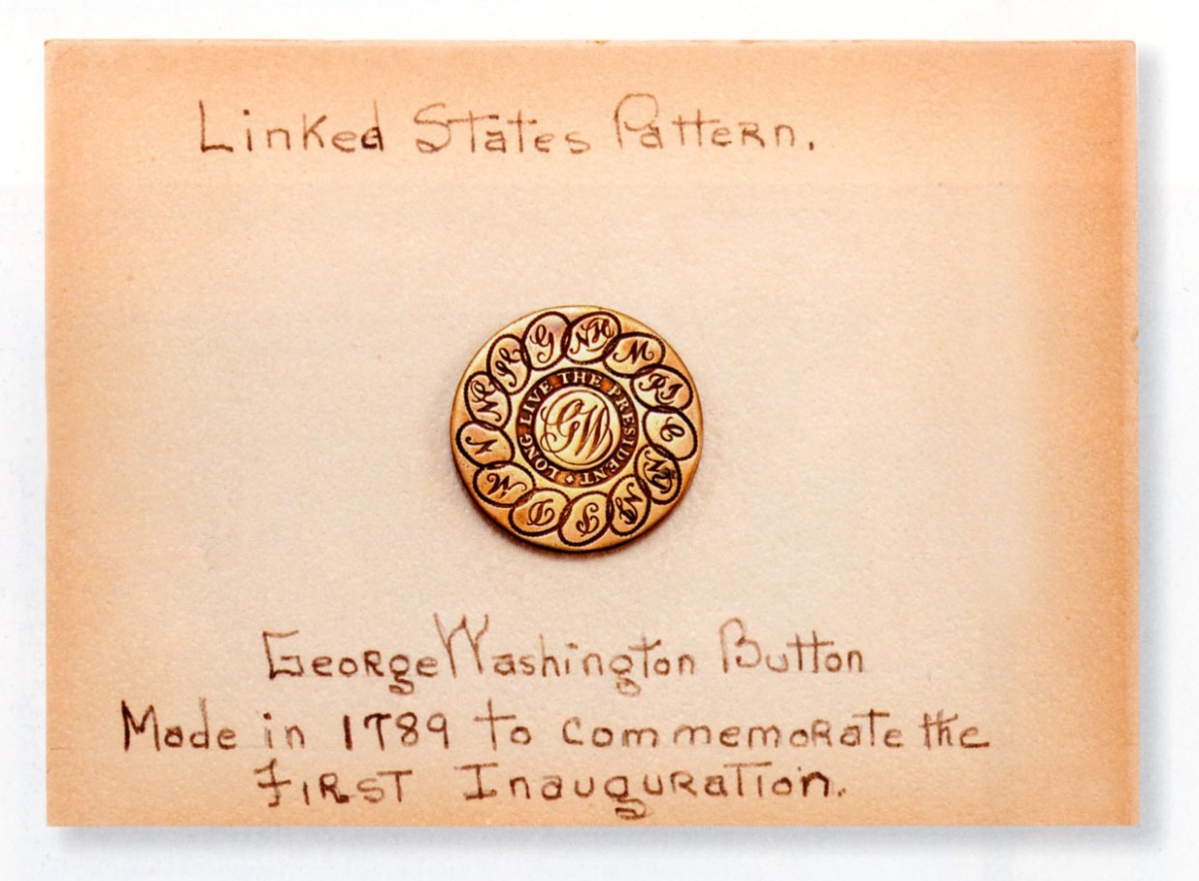 Linked States Pattern.
G NH M RI C NY NJ P D M V NC SC
LONG LIVE THE PRESIDENT
GW
George Washington Button
Made in 1789 to commemorate the
First Inauguration.